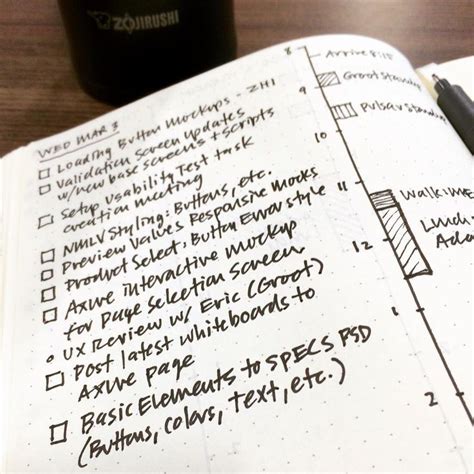 ZOJIRUSHI
WED MAR 3
Loading Button Mockups - ZH1
Validation Screen Updates
w/ new base screens + scripts
Setup Usability Test task
creation meeting
Styling: Buttons, etc.
Preview Values Responsive Mocks
Product Select: Button Error style
Axure interactive mockup
for Page Selection Screen
UX Review w/ Eric (Groot)
Post latest whiteboards to
Axure page
Basic Elements to SPECS PSD
(Buttons, colors, text, etc.)
8
Arrive 8:15
9
Groot Standup
10
Pulsar Standu
11
Walking
Lunch
12
2